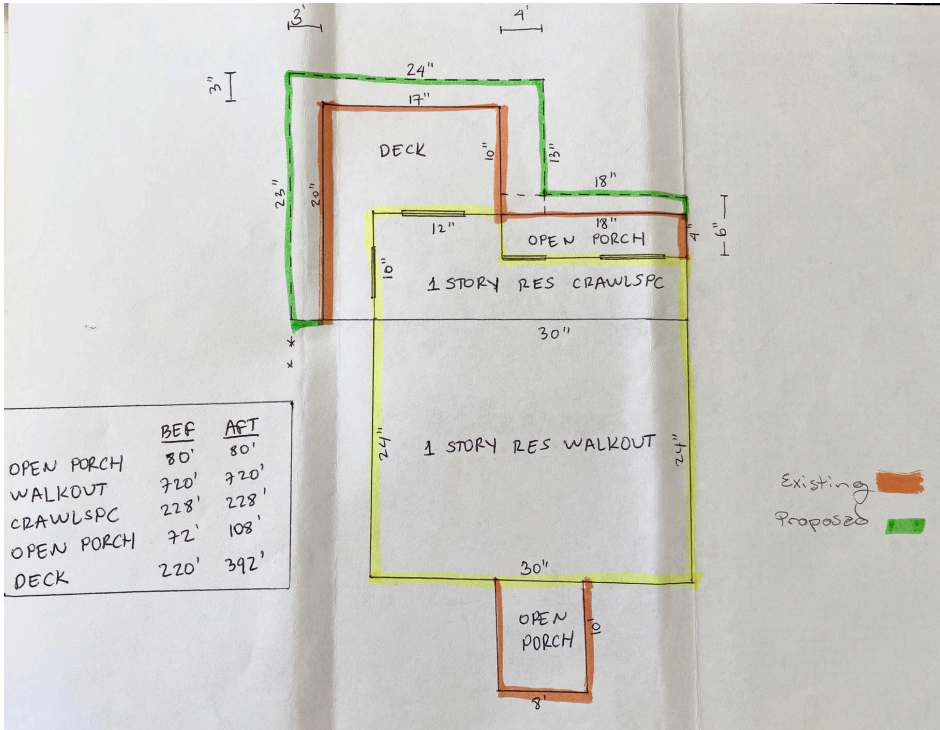 3'
4'
24"
3"
17"
DECK
10"
13"
23"
20"
18"
12"
18"
OPEN PORCH
4"
6"
10"
1 STORY RES CRAWLSPC
30"
24"
1 STORY RES WALKOUT
24"
BEF AFT
OPEN PORCH 80' 80'
WALKOUT 720' 720'
CRAWLSPC 228' 228'
OPEN PORCH 72' 108'
DECK 220' 392'
Existing
Proposed
30"
OPEN
PORCH
10'
8'